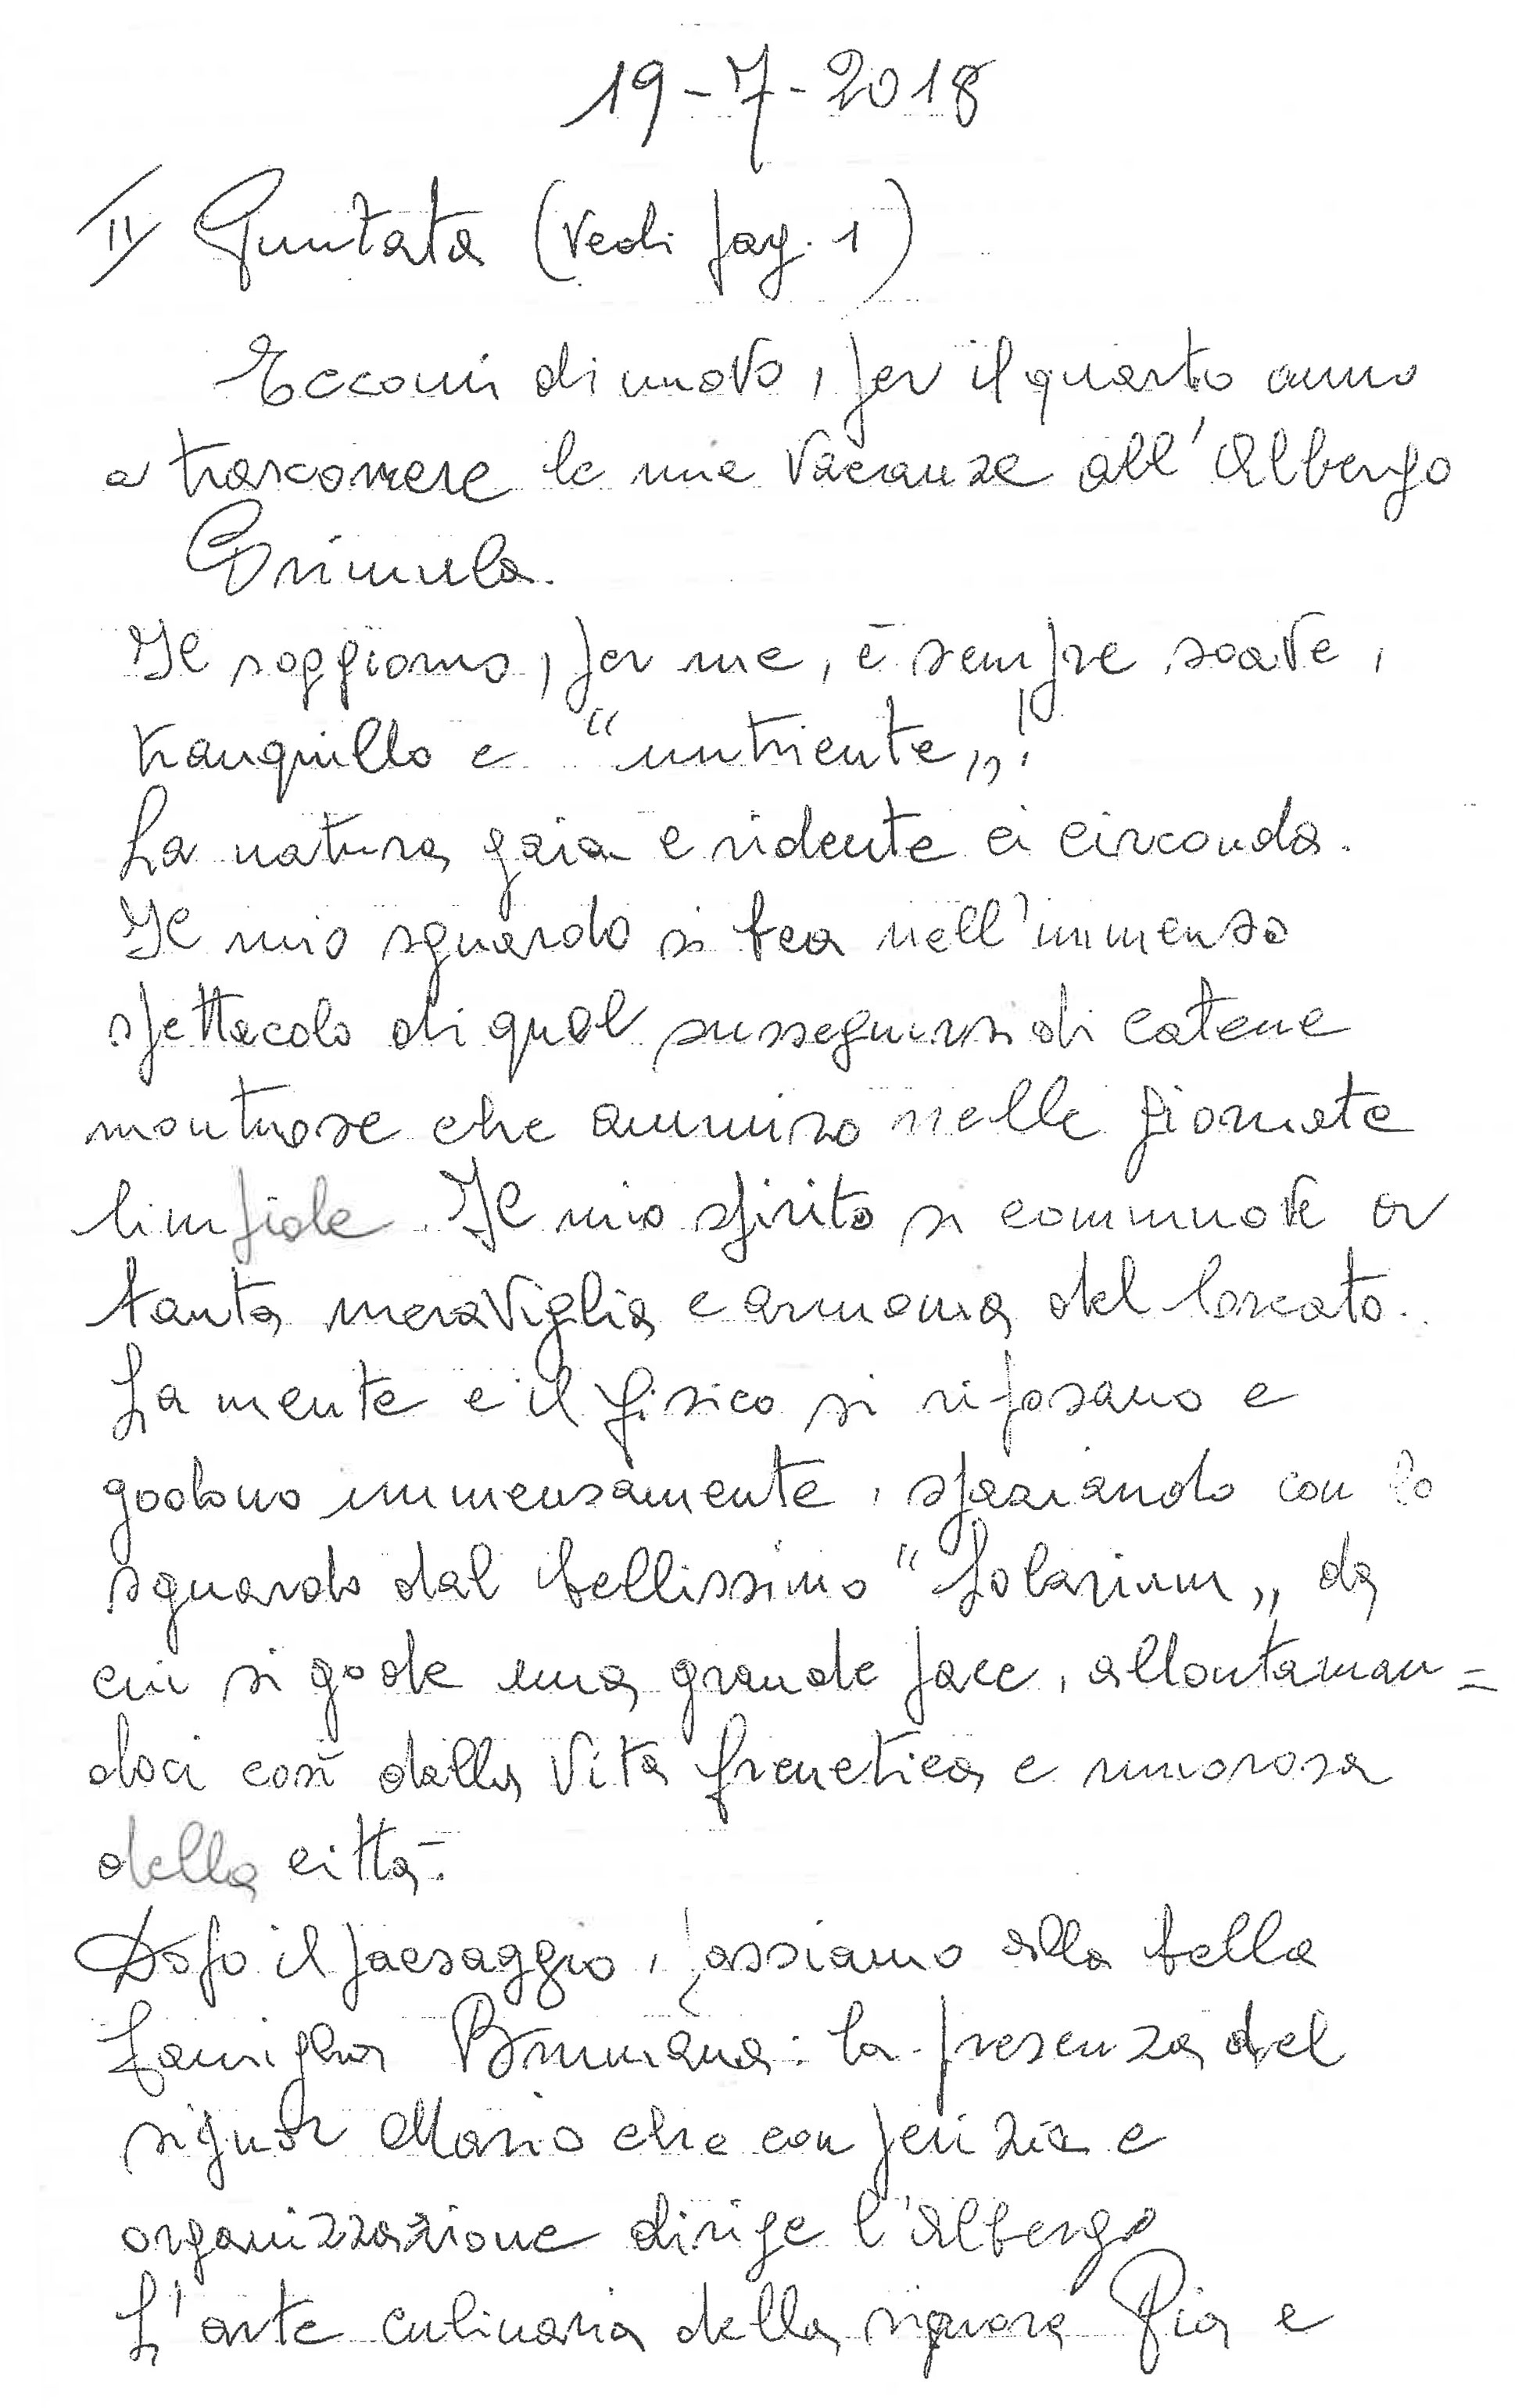 19-7-2018
II Puntata (vedi pag. 1)
Eccomi di nuovo, per il quarto anno
a trascorrere le mie vacanze all'Albergo
Primula.
Il soggiorno, per me, è sempre soave,
tranquillo e "nutriente"!
La natura gaia e ridente ci circonda.
Il mio sguardo si bea nell'immenso
spettacolo di quel susseguirsi di catene
montuose che ammiro nelle giornate
limpide. Il mio spirito si commuove a
tanta meraviglia e armonia del creato.
La mente e il fisico si riposano e
godono immensamente, spaziando con lo
sguardo dal bellissimo "Solarium" da
cui si gode una grande pace, allontanan=
doci così dalla vita frenetica e rumorosa
della città.
Dopo il paesaggio, passiamo alla bella
famiglia Brumana: la presenza del
signor Mario che con perizia e
organizzazione dirige l'albergo
L'arte culinaria della signora Pia e